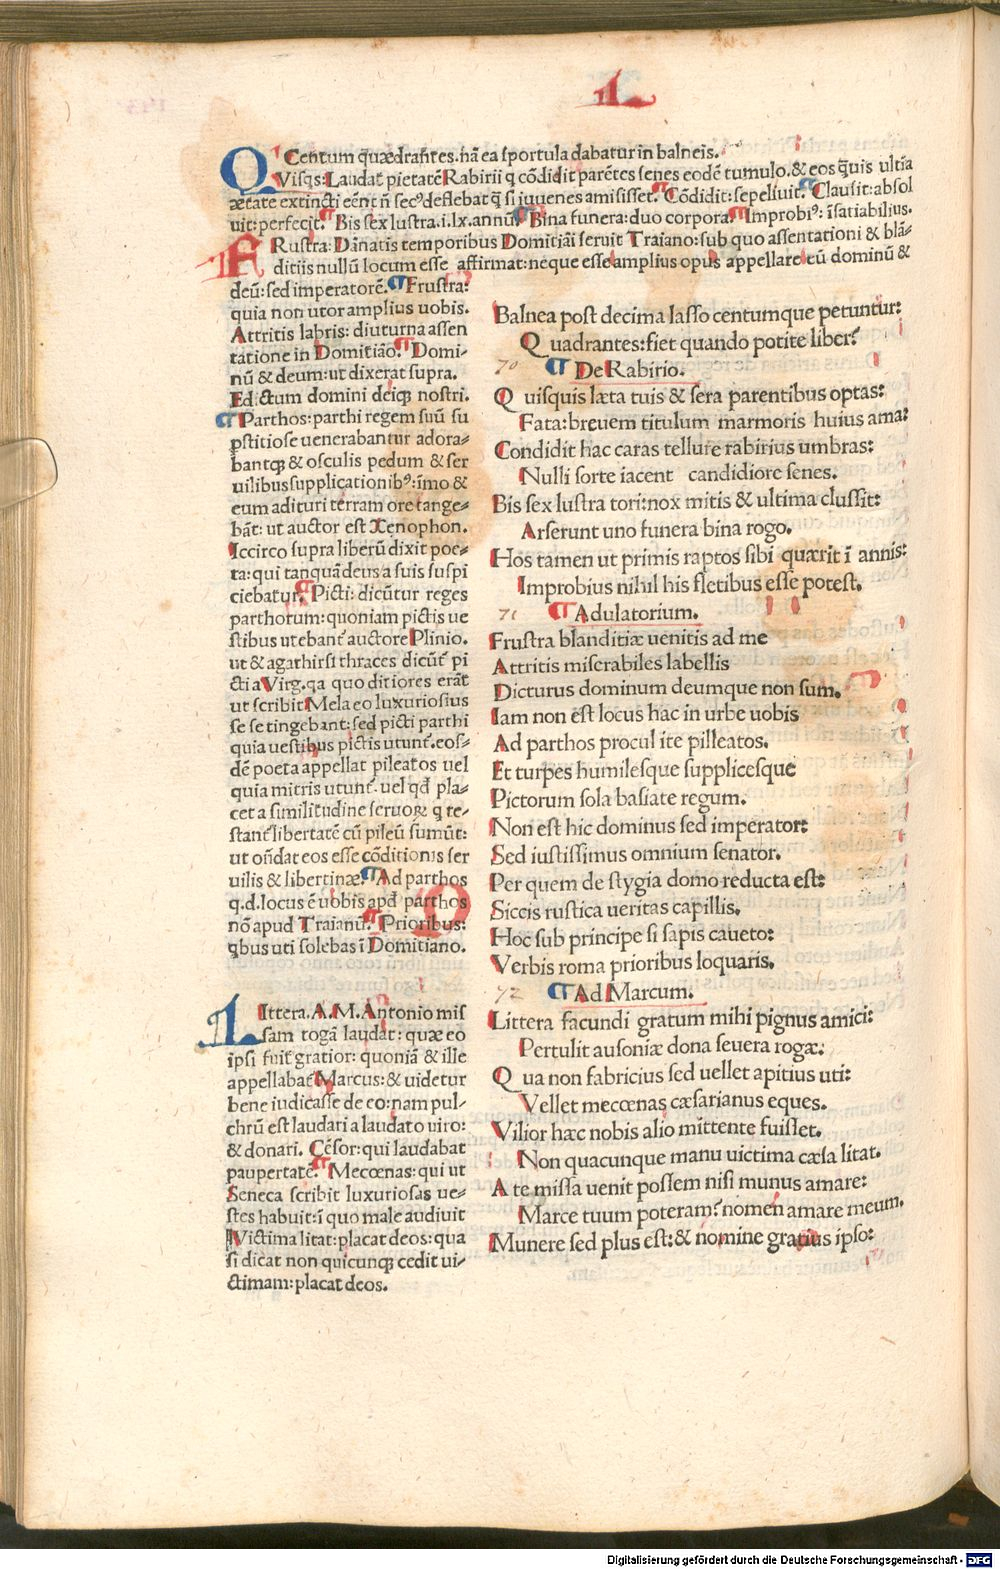 L
Centum quædrãtes. nã ea sportula dabatur in balneis.
QVisqs: Laudat pietatẽ Rabirii q cõdidit parẽtes senes eodẽ tumulo. & eos q̃uis ultĩa
ætate extincti eẽnt ñ secꝰ deflebat q̃ si iuuenes amisisset. Cõdidit: sepeliuit. Clausit: absol
uit: perfecit. Bis sex lustra. i. lx. annũ. Bina funera: duo corpora. Improbiꝰ: ĩsatiabilius.
FRustra: Dãnatis temporibus Domitiãi seruit Traiano: sub quo assentationi & blã-
ditiis nullũ locum esse affirmat: neque esse amplius opus appellare eũ dominũ &
deũ: sed imperatorẽ. Frustra:
quia non utor amplius uobis.
Attritis labris: diuturna assen
tatione in Domitião. Domi-
nũ & deum: ut dixerat supra.
Edictum domini deiqꝫ nostri.
Parthos: parthi regem suũ su
pstitiose uenerabantur adora-
bantqꝫ & osculis pedum & ser
uilibus supplicationibꝰ: imo &
eum adituri terram ore tange-
bãt: ut auctor est Xenophon.
Iccirco supra liberũ dixit poe-
ta: qui tanquã deus a suis suspi
ciebatur. Picti: dicũtur reges
parthorum: quoniam pictis ue
stibus utebant auctore Plinio.
ut & agathirsi thraces dicũt pi
cti a Virg. qa quo ditiores erãt
ut scribit Mela eo luxuriosius
se se tingebant: sed picti parthi
quia uestibus pictis utunt. eos-
dẽ poeta appellat pileatos uel
quia mitris utunt. uel qd pla-
cet a similitudine seruoꝝ q te-
stant libertatẽ cũ pileũ sumũt:
ut oñdat eos esse cõditionis ser
uilis & libertinæ. Ad parthos
q. d. locus ẽ uobis apd parthos
nõ apud Traianũ. Prioribus:
qbus uti solebas ĩ Domitiano.
LIttera. A. M. Antonio mis
sam togã laudat: quæ eo
ipsi fuit gratior: quoniã & ille
appellabat Marcus: & uidetur
bene iudicasse de eo: nam pul-
chrũ est laudari a laudato uiro:
& donari. Cẽsor: qui laudabat
paupertatẽ. Mecœnas: qui ut
Seneca scribit luxuriosas ue-
stes habuit: ĩ quo male audiuit
Victima litat: placat deos: qua
si dicat non quicunqꝫ cedit ui-
ctimam: placat deos.
Balnea post decima lasso centumque petuntur:
Quadrantes: fiet quando potite liber?
70 De Rabirio.
Quisquis læta tuis & sera parentibus optas:
Fata: breuem titulum marmoris huius ama:
Condidit hac caras tellure rabirius umbras:
Nulli sorte iacent candidiore senes.
Bis sex lustra tori: nox mitis & ultima clussit:
Arserunt uno funera bina rogo.
Hos tamen ut primis raptos sibi quærit ĩ annis:
Improbius nihil his fletibus esse potest.
71 Adulatorium.
Frustra blanditiæ uenitis ad me
Attritis miserabiles labellis
Dicturus dominum deumque non sum.
Iam non est locus hac in urbe uobis
Ad parthos procul ite pilleatos.
Et turpes humilesque supplicesque
Pictorum sola basiate regum.
Non est hic dominus sed imperator:
Sed iustissimus omnium senator.
Per quem de stygia domo reducta est:
Siccis rustica ueritas capillis.
Hoc sub principe si sapis caueto:
Verbis roma prioribus loquaris.
72 Ad Marcum.
Littera facundi gratum mihi pignus amici:
Pertulit ausoniæ dona seuera rogæ:
Qua non fabricius sed uellet apitius uti:
Vellet mecœnas cæsarianus eques.
Vilior hæc nobis alio mittente fuisset.
Non quacunque manu uictima cæsa litat.
A te missa uenit possem nisi munus amare:
Marce tuum poteram? nomen amare meum.
Munere sed plus est: & nomine gratius ipso:
Digitalisierung gefördert durch die Deutsche Forschungsgemeinschaft - DFG